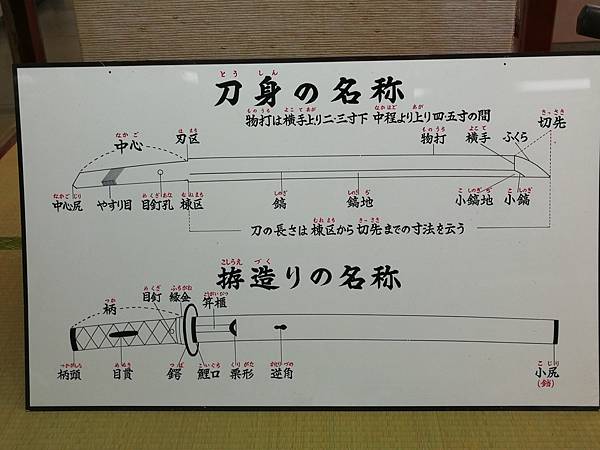 とうしん
刀身の名称
ものうち よこてあが なかほど あが
物打は横手上り二・三寸下 中程より上り四・五寸の間
きっさき
切先
なかご はまち ものうち よこて
中心 刃区 物打 横手 ふくら
なかごじり めくぎあな むねまち しのぎ しのぎぢ こしのぎぢ こしのぎ
中心尻 やすり目 目釘孔 棟区 鎬 鎬地 小鎬地 小鎬
むねまち きっさき
刀の長さは棟区から切先までの寸法を云う
こしらえ づく
拵造りの名称
つか めくぎ ふちがね
柄 目釘 縁金 笄櫃
つかがしら めぬき つば こいぐち くりがた かえりづの こじり
柄頭 目貫 鍔 鯉口 栗形 逆角 小尻
(鐺)